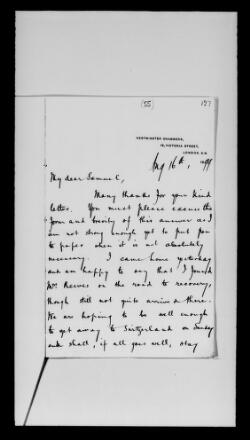 (55)
127
WESTMINSTER CHAMBERS,
13, VICTORIA STREET,
LONDON, S.W.
Aug 16th, 1899
My dear Samuel,
Many thanks for your kind
letter. You must please excuse the
form and brevity of this answer as I
am not strong enough yet to put pen
to paper when it is not absolutely
necessary. I came home yesterday
and am happy to say that I found
Mrs Reeves on the road to recovery,
though still not quite arrived there.
We are hoping to be well enough
to get away to Switzerland on Sunday
and shall, if all goes well, stay